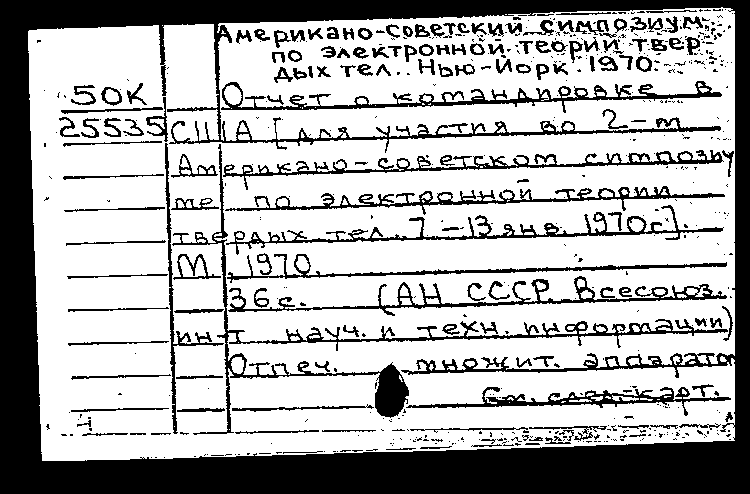 Американо-советский симпозиум
по электронной теории твер-
дых тел. Нью-Йорк. 1970.
50К Отчет о командировке в
25535 США [для участия во 2-м
Американо-советском симпозиу
ме по электронной теории
твердых тел. 7-13 янв. 1970г].
М., 1970.
36с. (АН СССР. Всесоюз.
ин-т науч. и техн. информации)
Отпеч. множит. аппарато
См. след. карт.